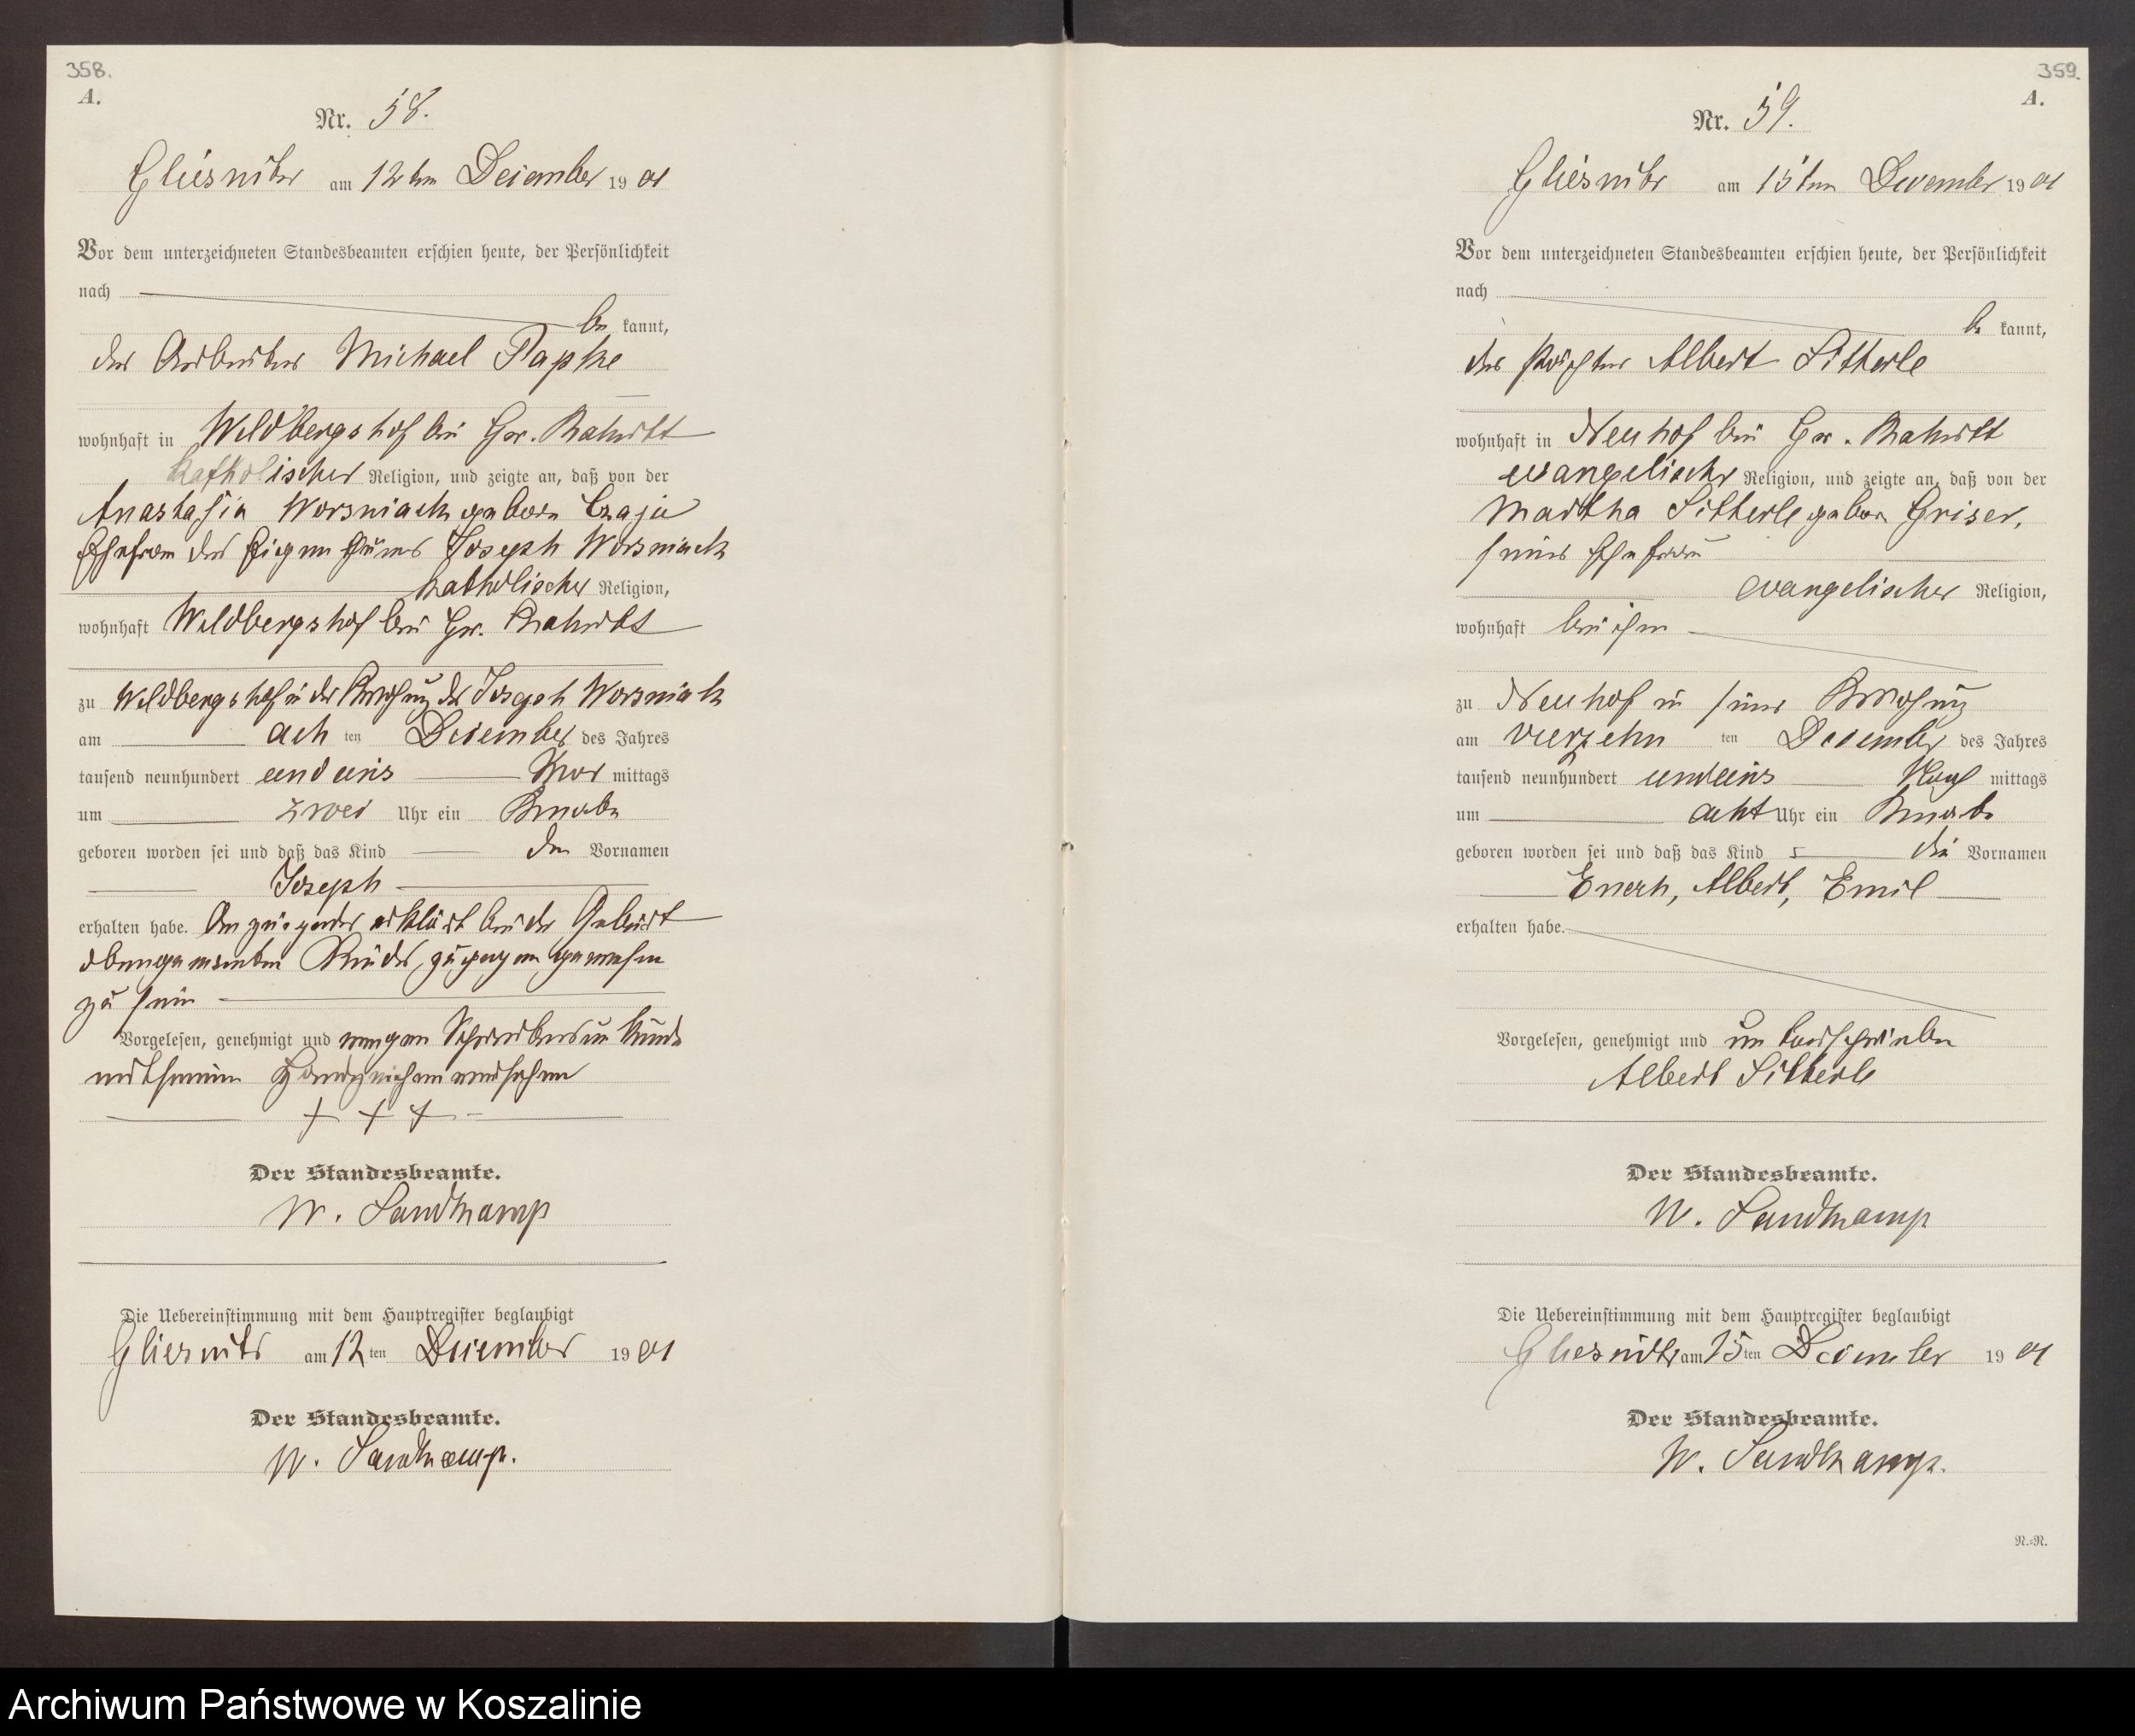 358.
A.
Nr. 58.
Gliesnitz am 12ten Dezember 1901
Vor dem unterzeichneten Standesbeamten erschien heute, der Persönlichkeit
nach
be kannt,
der Arbeiter Michael Papke
wohnhaft in Wildbergshof bei Gr.
katholischer Religion, und zeigte an, daß von der
Anastasia Worsniack geborn
Ehefrau des Eigenthümers Joseph Worsniack
katholischer Religion,
wohnhaft Wildbergshof bei Gr.
zu Wildbergshof in der Wohnung des Joseph Worsniack
am achten Dezember des Jahres
tausend neunhundert und eins Vor mittags
um zwei Uhr ein Knabe
geboren worden sei und daß das Kind den Vornamen
Joseph
erhalten habe. Anzeigender erklärt bei der Geburt
obengenannten Kindes, zugegen gewesen
zu sein
Vorgelesen, genehmigt und wegen Schreibensunkunde
mit seinem Handzeichen versehen
+ + +
Der Standesbeamte.
W. Sandkamp
Die Uebereinstimmung mit dem Hauptregister beglaubigt
Gliesnitz am 12ten Dezember 1901
Der Standesbeamte.
W. Sandkamp.
359.
A.
Nr. 59.
Gliesnitz am 15ten Dezember 1901
Vor dem unterzeichneten Standesbeamten erschien heute, der Persönlichkeit
nach
be kannt,
der Pächter Albert Sitterle
wohnhaft in Neuhof bei Gr.
evangelischer Religion, und zeigte an, daß von der
Martha Sitterle geborn Griser,
seiner Ehefrau
evangelischer Religion,
wohnhaft bei ihm
zu Neuhof in seiner Wohnung
am vierzehn ten Dezember des Jahres
tausend neunhundert undeins Nach mittags
um acht Uhr ein Knabe
geboren worden sei und daß das Kind die Vornamen
Albert, Emil
erhalten habe.
Vorgelesen, genehmigt und unterschrieben
Albert Sitterle
Der Standesbeamte.
W. Sandkamp
Die Uebereinstimmung mit dem Hauptregister beglaubigt
Gliesnitz am 15ten Dezember 1901
Der Standesbeamte.
W. Sandkamp.
N.=N.
Archiwum Państwowe w Koszalinie